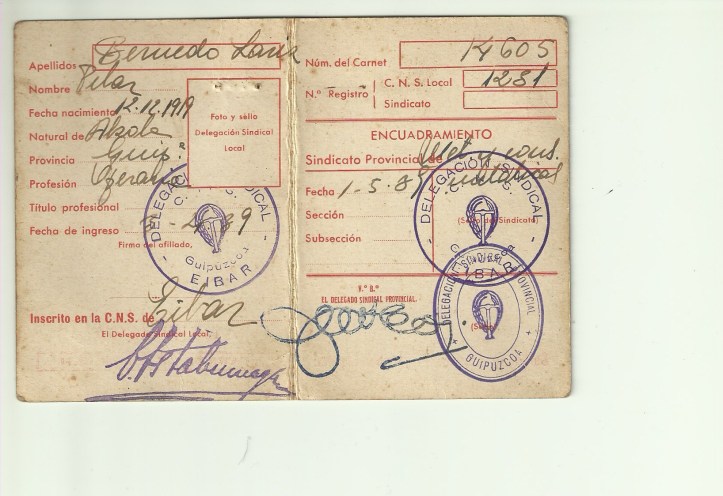 Apellidos Bernedo
Nombre Pilar
Fecha nacimiento 12.12.1919
Natural de Alzola
Provincia Guip.
Profesión
Título profesional
Fecha de ingreso
Firma del afiliado,
Foto y sello
Delegación Sindical
Local
DELEGACIÓN SINDICAL
C.N.S.
Guipuzcoa
EIBAR
Inscrito en la C.N.S. de Eibar
El Delegado Sindical Local,
Núm. del Carnet 14605
N.º Registro
C. N. S. Local 1281
Sindicato
ENCUADRAMIENTO
Sindicato Provincial de Met. y cons.
Fecha 1-5.
Sección
(Sello del Sindicato)
Subsección
DELEGACIÓN SINDICAL
EIBAR
V.º B.º
EL DELEGADO SINDICAL PROVINCIAL,
DELEGACION SINDICAL PROVINCIAL
(Sello)
GUIPUZCOA